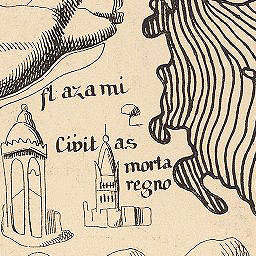 fl azami
Civit as
morta
regno